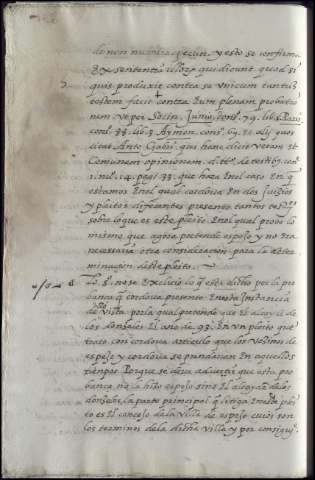 de non nullis y esto se confirma
Ex sententia illorum qui dicunt quod si
quis produxit contra se unicum tantum
testem facit contra plenam probatio
nem ut per Socin. Junio. cons. 79. lib. Ruin.
cons. 38. lib. 3 Aymon. cons. 63. et alij quos
citat Anto Gabri. qui hanc dicit veram et
Comunem opinionem. d. tit. de testib. con.
1. nu. 14. pag. 33. que haze Enel caso En q
estamos Enel qual cordova En dos Juizios
y pleitos diferentes presento tantos testigos
sobre lo que es este pleito. Enel qual provo lo
mismo que agora pretende espejo y no era
necessaria otra consideracion para la deter
minacion deste pleito.
Lo 8. no se Excluio lo q esta dicho por la pro
banca q cordova presento Enesta Instancia
de vista. por la qual pretende que El alcayde de
los donzeles El año de 93. En un pleito que
trato con cordova articulo que los vezinos de
espejo y cordova se prendavan En aquellos
tienpos Porque se deve advertir que esta pro
banca no la hizo espejo sino El alcayde de los
donzeles, la parte principal q litiga Eneste plei
to es El concejo de la villa de espejo cuios son
los terminos de la dicha villa y por consigui